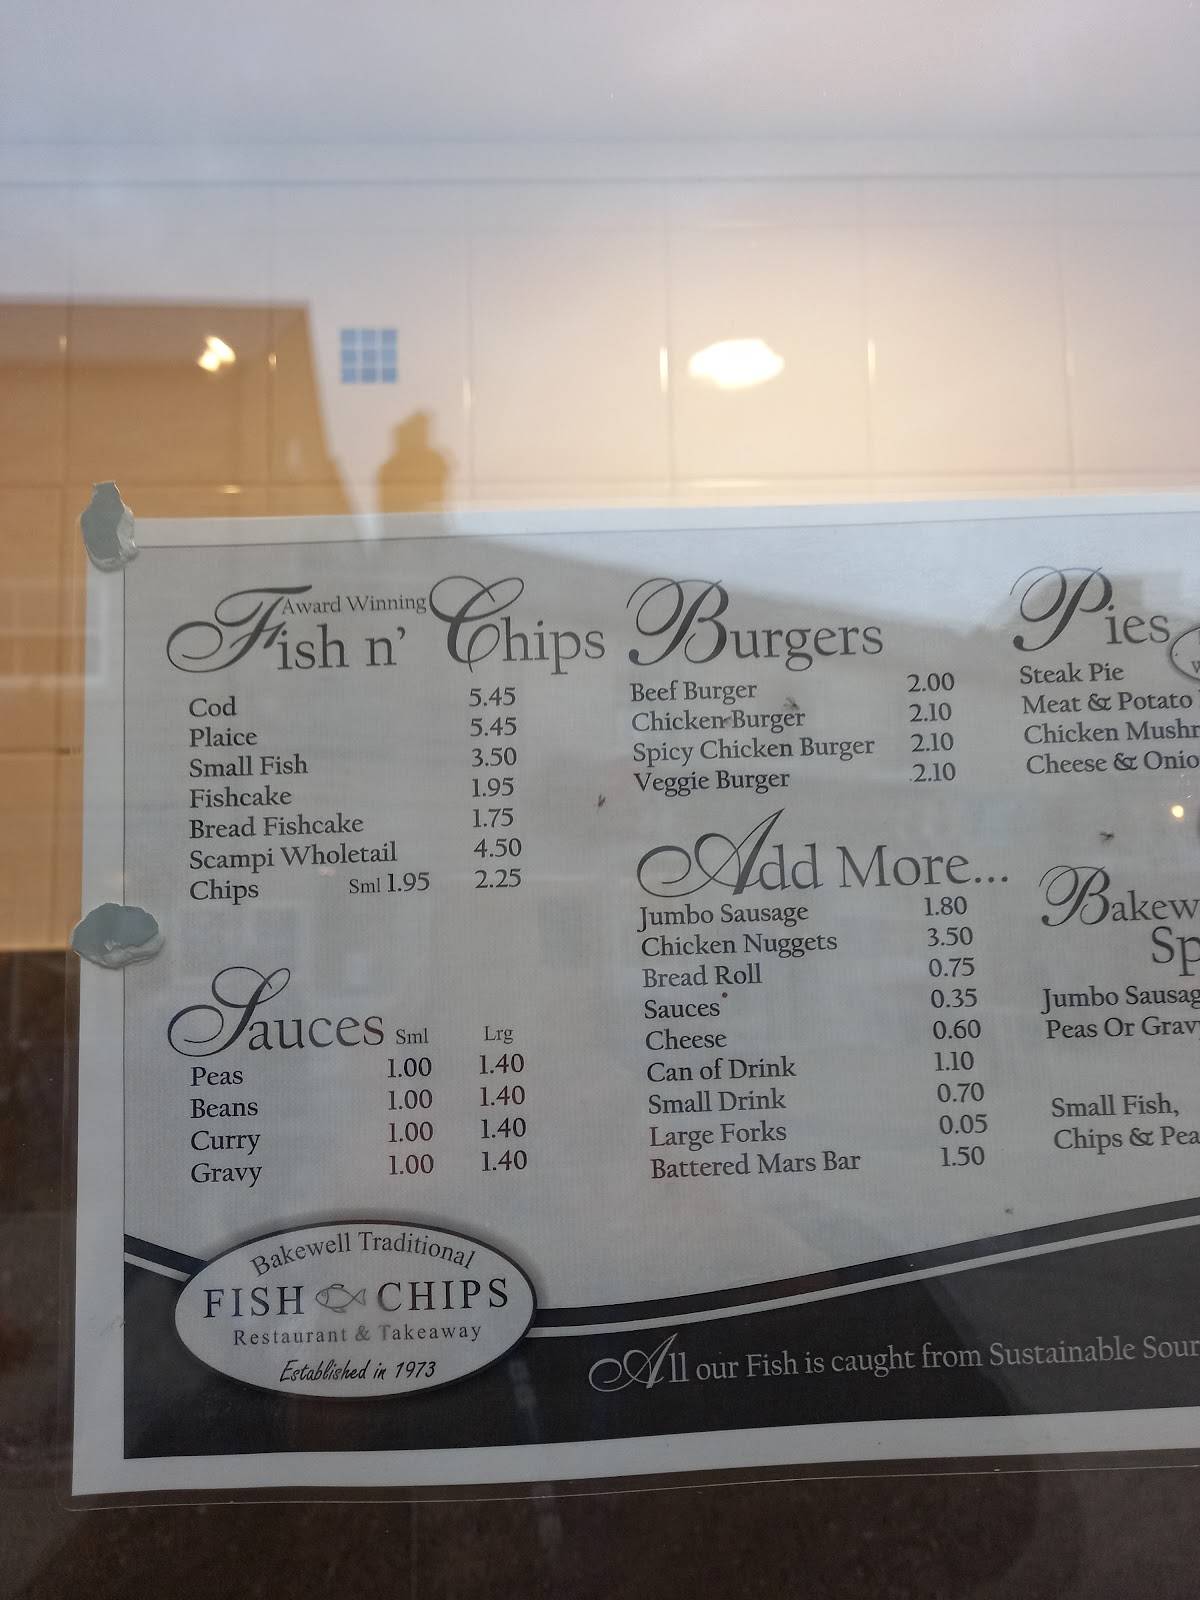 Award Winning
Fish n' Chips
Cod 5.45
Plaice 5.45
Small Fish 3.50
Fishcake 1.95
Bread Fishcake 1.75
Scampi Wholetail 4.50
Chips Sml 1.95 2.25
Sauces Sml Lrg
Peas 1.00 1.40
Beans 1.00 1.40
Curry 1.00 1.40
Gravy 1.00 1.40
Burgers
Beef Burger 2.00
Chicken Burger 2.10
Spicy Chicken Burger 2.10
Veggie Burger 2.10
Add More...
Jumbo Sausage 1.80
Chicken Nuggets 3.50
Bread Roll 0.75
Sauces 0.35
Cheese 0.60
Can of Drink 1.10
Small Drink 0.70
Large Forks 0.05
Battered Mars Bar 1.50
Pies
Steak Pie
Meat & Potato
Chicken Mushr
Cheese & Onio
Bakew
Sp
Jumbo Sausag
Peas Or Grav
Small Fish,
Chips & Pea
Bakewell Traditional
FISH CHIPS
Restaurant & Takeaway
Established in 1973
All our Fish is caught from Sustainable Sour